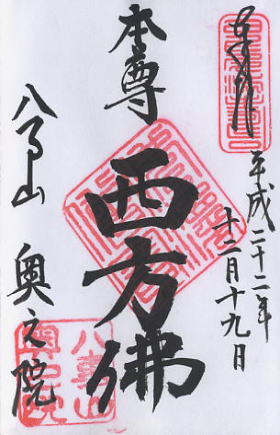 奉拝
平成二十二年
十二月十九日
本尊
西方佛
八事山 奥之院
八事山
奥之院